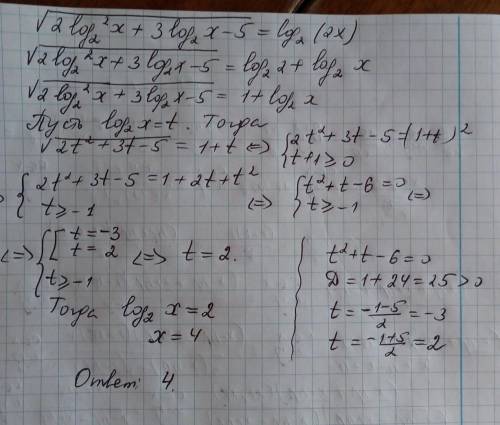 √(2 log₂²x + 3 log₂x - 5) = log₂ (2x)
√(2 log₂²x + 3 log₂x - 5) = log₂ 2 + log₂ x
√(2 log₂²x + 3 log₂x - 5) = 1 + log₂ x
Пусть log₂x = t. Тогда
√(2t² + 3t - 5) = 1 + t <=> { 2t² + 3t - 5 = (1+t)²
t + 1 ≥ 0
{ 2t² + 3t - 5 = 1 + 2t + t²
t ≥ -1
<=> { t² + t - 6 = 0
t ≥ -1 <=>
<=> { [ t = -3
t = 2
t ≥ -1
<=> t = 2.
Тогда log₂ x = 2
x = 4.
t² + t - 6 = 0
D = 1 + 24 = 25 > 0
t = (-1-5)/2 = -3
t = (-1+5)/2 = 2
Ответ: 4.